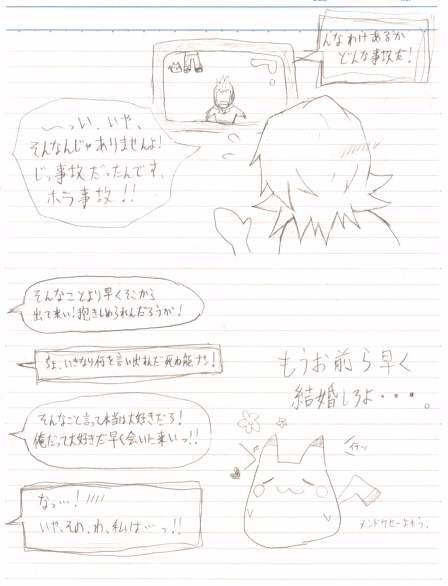 んなわけあるか
どんな事故だ!
〜っい、いや、
そんなんじゃありませんよ!
じっ事故だったんです、
ホラ事故!!
そんなことより早くそこから
出て来い!抱きしめられんだろうが!
なぁ、いきなり何を言い出すんだ死ね能ナシ!
そんなこと言って本当は大好きだろ!
俺だって大好きだ早く会いに来いっ!!
なっ…!////
いや、その、わ、私は…っ!!
もうお前ら早く
結婚しろよ・・・・。
メンドクセーよもう。